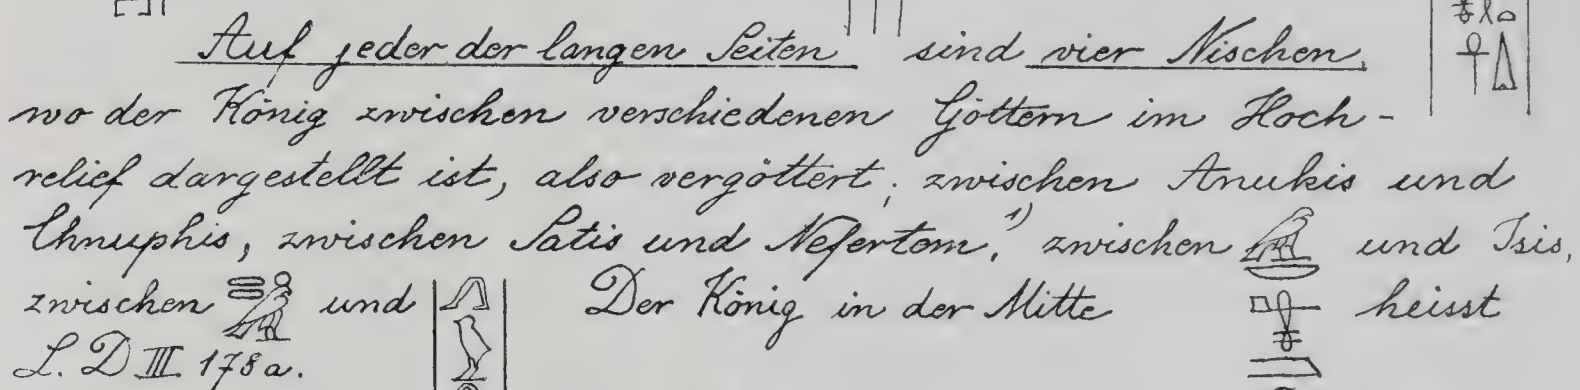 Auf jeder der langen Seiten sind vier Nischen,
wo der König zwischen verschiedenen Göttern im Hoch-
relief dargestellt ist, also vergöttert; zwischen Anukis und
Chnuphis, zwischen Satis und Nefertem.¹⁾ zwischen und Isis,
zwischen und Der König in der Mitte heisst
L. D III. 178a.